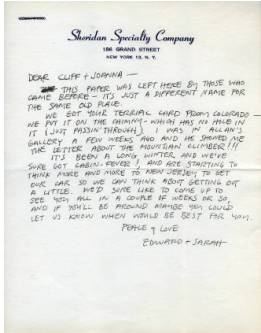 Sheridan Specialty Company
186 GRAND STREET
NEW YORK 13, N.Y.
DEAR CLIFF + JOANNA —
THIS PAPER WAS LEFT HERE BY THOSE WHO
CAME BEFORE — IT'S JUST A DIFFERENT NAME FOR
THE SAME OLD PLACE.
WE GOT YOUR TERRIAL CARD FROM COLORADO —
WE PUT IT ON THE CHIMNY — WHICH HAS NO HOLE IN
IT (JUST PASSIN' THROUGH). I WAS IN ALLAN'S
GALLERY A FEW WEEKS AGO AND HE SHOWED ME
THE LETTER ABOUT THE MOUNTAIN CLIMBER!!!
IT'S BEEN A LONG WINTER AND WE'VE
SURE GOT CABIN-FEVER! AND ARE STARTING TO
THINK MORE AND MORE TO NEW JERSEY, TO GET
OUR CAR SO WE CAN THINK ABOUT GETTING OUT
A LITTLE. WE'D SURE LIKE TO COME UP TO
SEE YOU ALL IN A COUPLE OF WEEKS OR SO,
AND IF YOU'LL BE AROUND MAYBE YOU COULD
LET US KNOW WHEN WOULD BE BEST FOR YOU.
PEACE & LOVE
EDWARD + SARAH